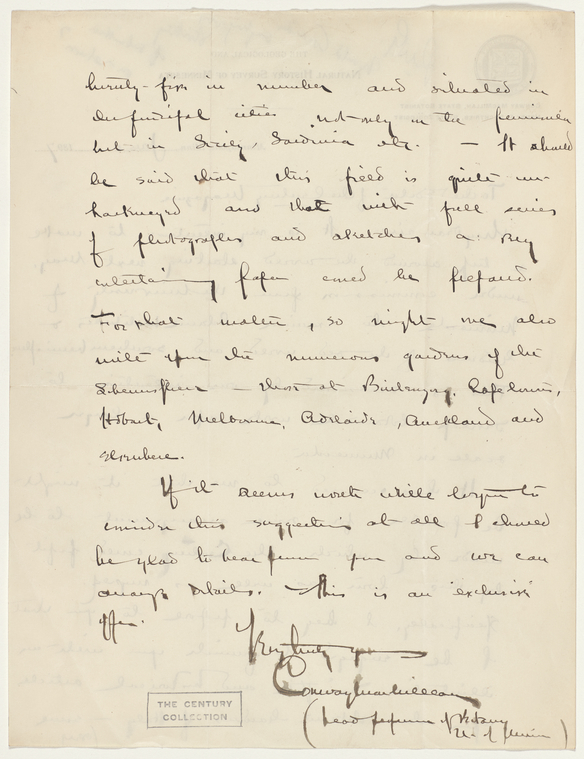 twenty-five in number and situated in
beautiful cities not only in the peninsula
but in Sicily, Sardinia etc. — It should
be said that this field is quite un-
hackneyed and that with full series
of photographs and sketches a very
entertaining paper could be prepared.
For that matter, so might one also
write upon the numerous gardens of the
— those at Buitenzorg, Cape town,
Hobart, Melbourne, Adelaide, Auckland and
elsewhere.
If it seems worth while to you to
consider this suggestion at all I should
be glad to hear from you and we can
arrange details. This is an "exclusive"
offer.
Very truly yours
Conway MacMillan
(head professor of Botany
U. of Minn)
THE CENTURY
COLLECTION